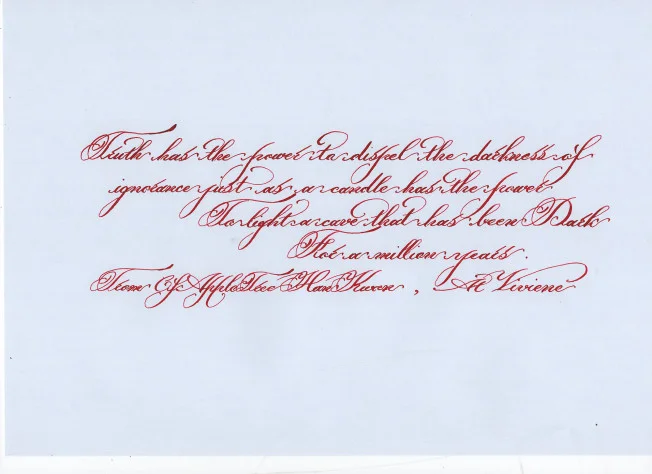 Truth has the power to dispel the darkness of
ignorance just as a candle has the power
To light a cave that has been Dark
For a million years.
From AppleTree Han Kwen , At Viviene